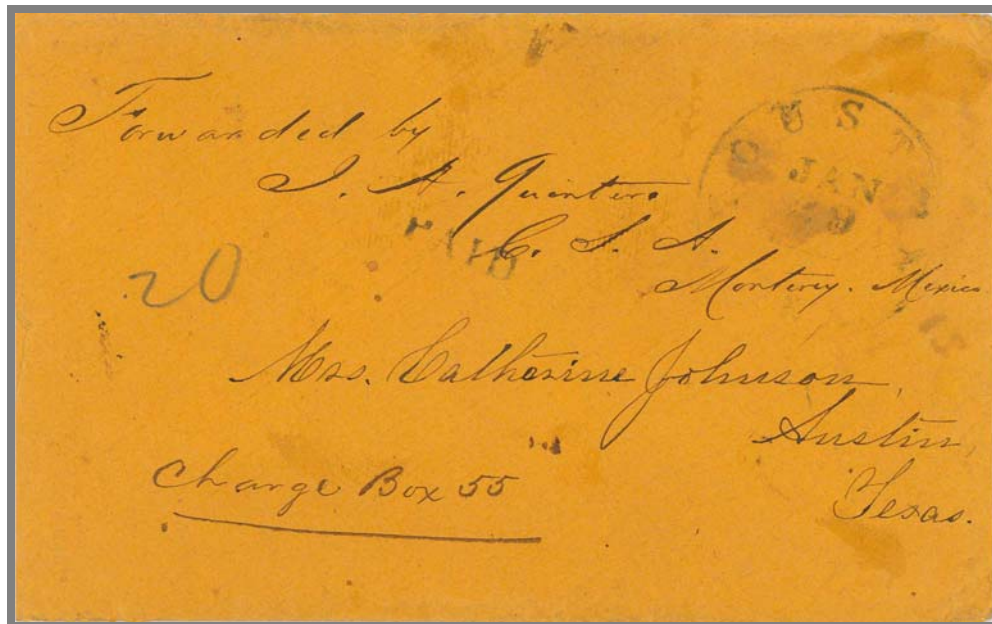 Forwarded by
J. A. Quintero
C. S. A.
Monterey. Mexico
OUST
JAN
PAID
20
15
Mrs. Catherine Johnson,
Austin,
Texas.
Charge Box 55